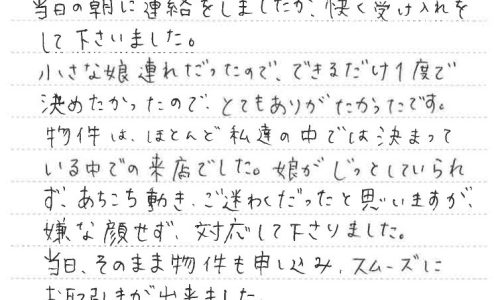 当日の朝に連絡をしましたが、快く受け入れを
して下さいました。
小さな娘連れだったので、できるだけ1度で
決めたかったので、とてもありがたかったです。
物件は、ほとんど私達の中では決まって
いる中での来店でした。娘がじっとしていられ
ず、あちこち動き、ご迷わくだったと思いますが、
嫌な顔せず、対応して下さりました。
当日、そのまま物件も申し込み、スムーズに
お取引きが出来ました。